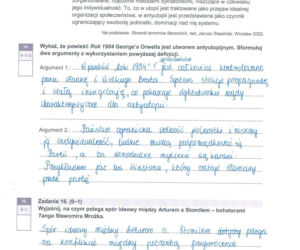 zorganizowane, rządzone metodami dyktatorskimi, niszczące w człowieku
jego indywidualność. To, co w utopii jest traktowane jako przejaw idealnej
organizacji społeczeństwa, w antyutopii jest przedstawiane jako czynnik
ograniczający swobodę jednostki, dominacji nad nią systemu.
Na podstawie: Słownik terminów literackich, red. Janusz Sławiński, Wrocław 2002.
Wykaż, że powieść Rok 1984 George'a Orwella jest utworem antyutopijnym. Sformułuj
dwa argumenty z wykorzystaniem powyższej definicji.
Argument 1: W powieści „Rok 1984" jest całkowicie kontrolowane
przez władzę i Wielkiego Brata. System stosuje propagandę
i stałą inwigilację, co pokazuje dyktatorskie rządy
charakterystyczne dla antyutopii.
Argument 2: Państwo ogranicza wolność jednostki i niszczy
jej indywidualność, ludzie muszą podporządkować się
Partii, a za samodzielne myślenie są karani.
Przykładem jest los Winstona, który został złamany
przez partię.
Zadanie 16. (0–1)
Wyjaśnij, na czym polega spór ideowy między Arturem a Stomilem – bohaterami
Tanga Sławomira Mrożka.
Spór ideowy między Arturem a Stomilem dotyczy polega
na konflikcie między potrzebą